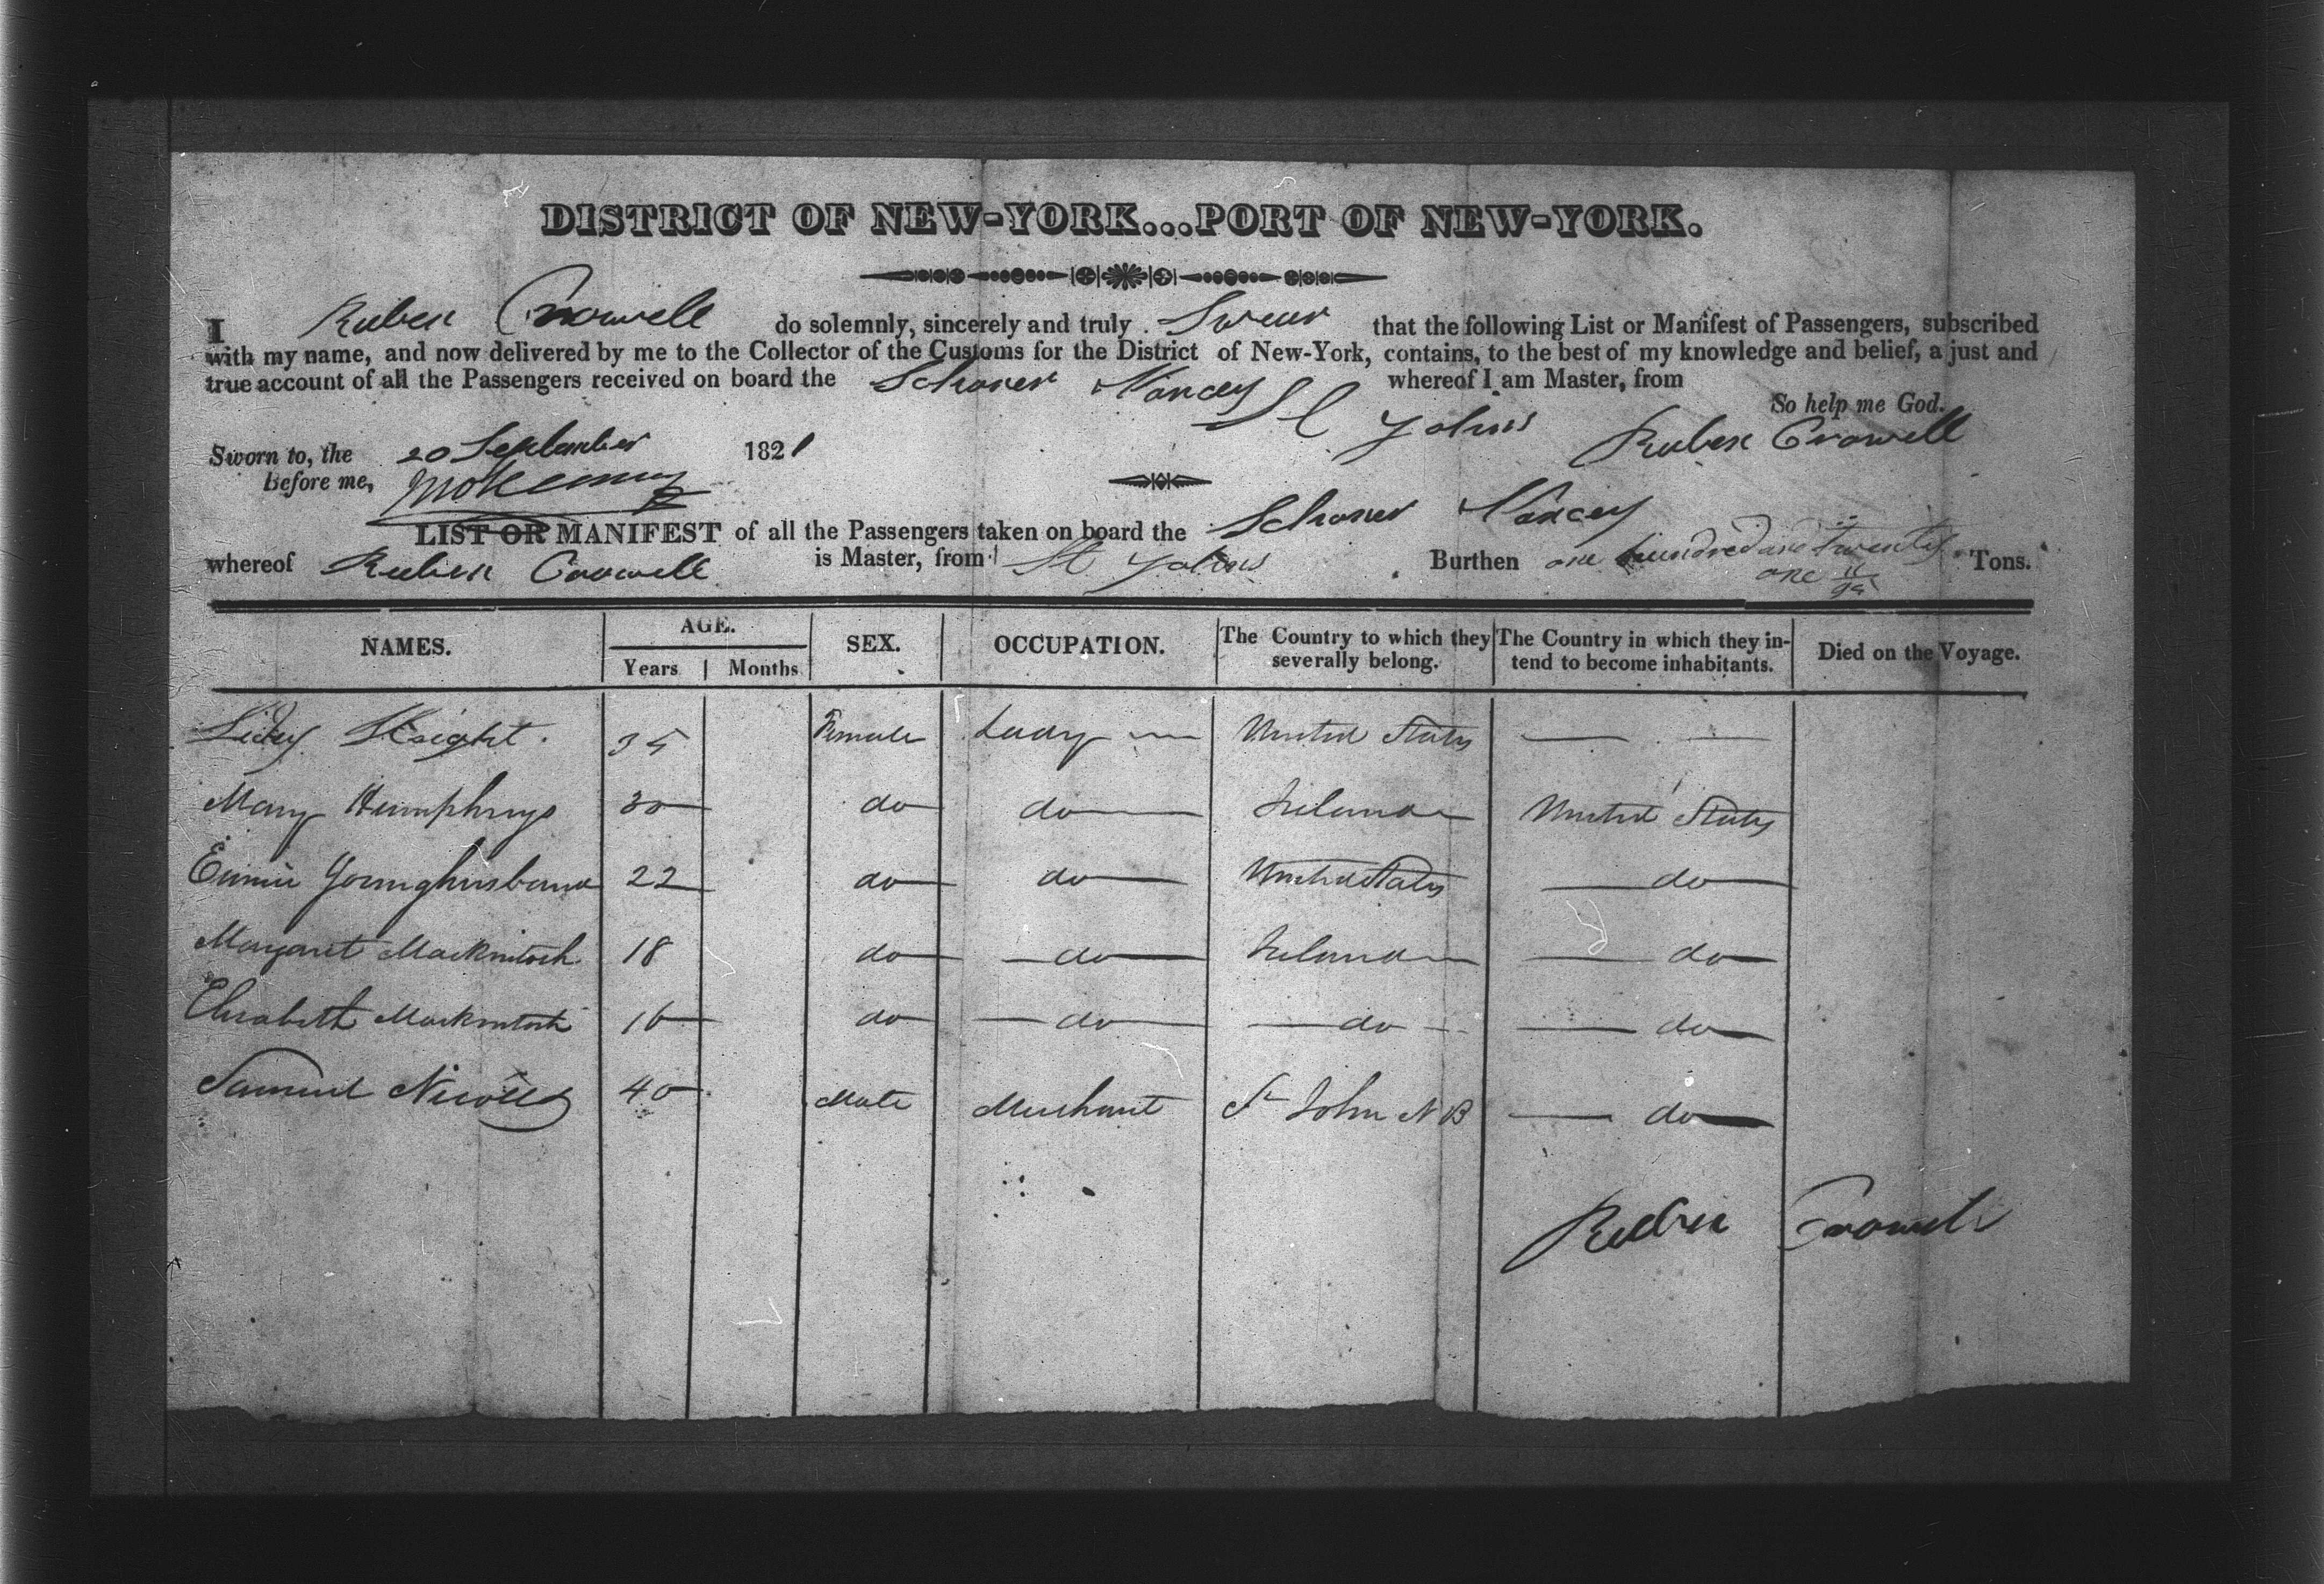 DISTRICT OF NEW-YORK...PORT OF NEW-YORK.
I Ruben Crowell do solemnly, sincerely and truly Swear that the following List or Manifest of Passengers, subscribed
with my name, and now delivered by me to the Collector of the Customs for the District of New-York, contains, to the best of my knowledge and belief, a just and
true account of all the Passengers received on board the Schoner Nancey whereof I am Master, from
St Johns So help me God.
Sworn to, the 20 September 1821 Ruben Crowell
Before me,
LIST OR MANIFEST of all the Passengers taken on board the Schoner Nancey
whereof Reuben Crowell is Master, from St Johns Burthen one hundred and twenty Tons.
one 11/95
NAMES. AGE. SEX. OCCUPATION. The Country to which they severally belong. The Country in which they in-tend to become inhabitants. Died on the Voyage.
Years Months
Haight 35 Female Lady United States
Mary Humphrys 30 do do Ireland United States
Younghusband 22 do do United States do
Margaret Mackintosh 18 do do Ireland do
Elisabeth Mackintosh 16 do do do do
Samuel 40 Male Merchant St John N B do
Reuben Crowell